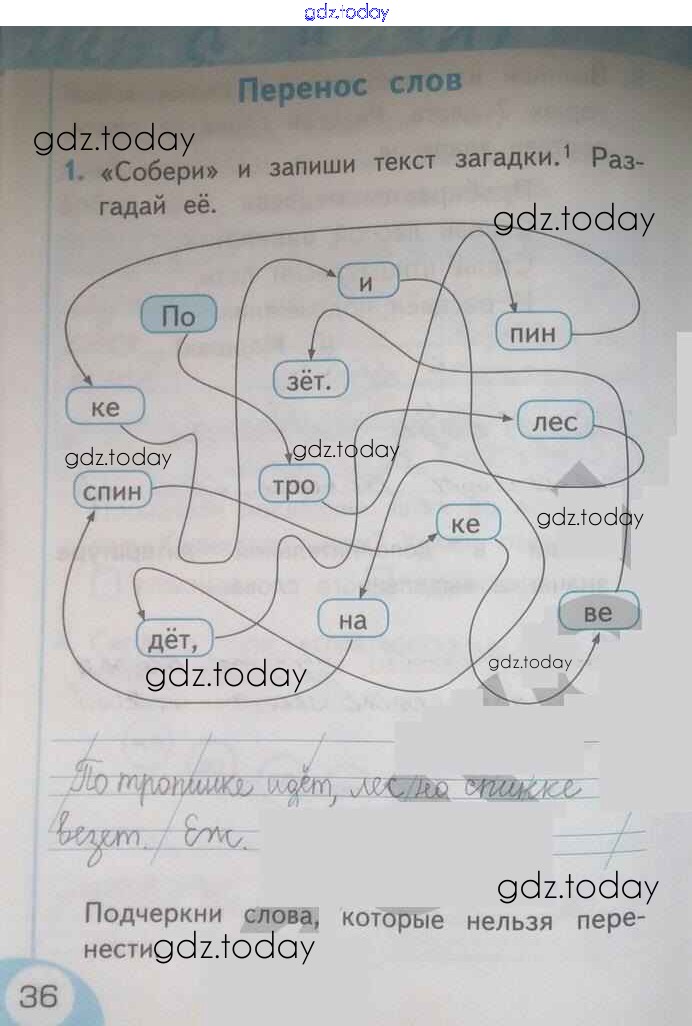 gdz.today
Перенос слов
gdz.today
1. «Собери» и запиши текст загадки.¹ Раз-
гадай её.
gdz.today
и
По
пин
зёт.
ке
лес
gdz.today
gdz.today
спин
тро
ке
gdz.today
на
ве
дёт,
gdz.today
gdz.today
По тропинке идёт, лес/на спинке
везет. / Еж.
gdz.today
Подчеркни слова, которые нельзя пере-
нести
gdz.today
36